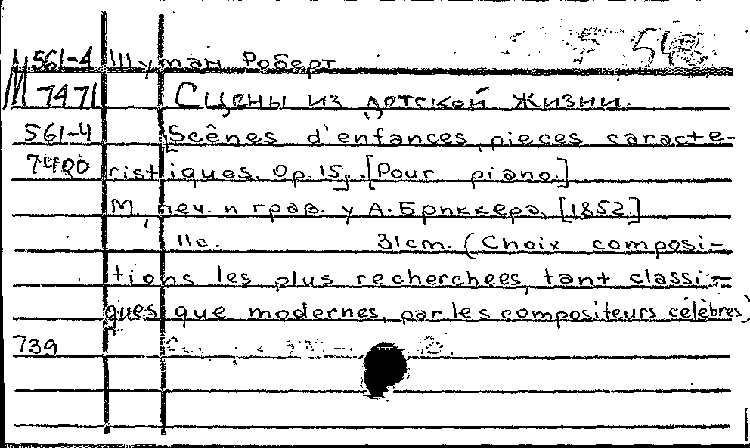 561-4 Шуман Роберт
М 7471 Сцены из детской жизни.
561-4 Scênes d'enfances, pieces caracte-
7400 ristiques. Op. 15. [Pour piano.]
М., печ. и грав. у А. Бриккера, [1852]
11с. 31cm. (Choix composi-
tions les plus recherchees, tant classi-
ques que modernes, par les compositeurs célèbres)
739